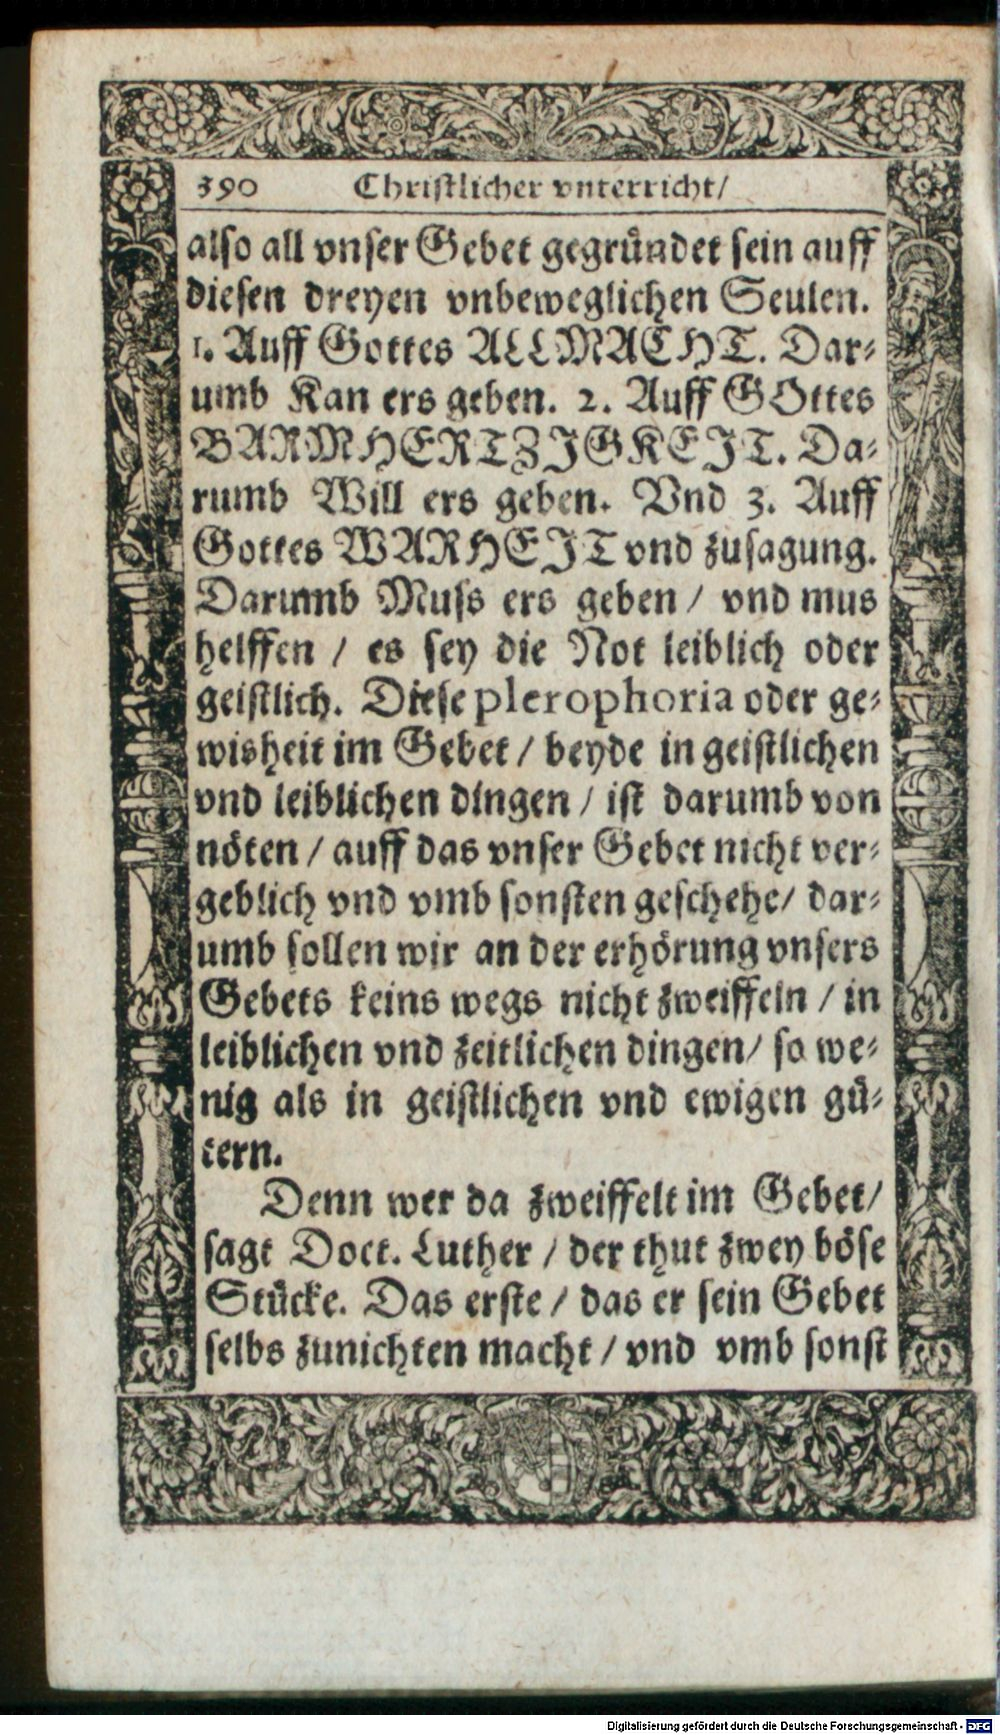 390 Christlicher vnterricht/
also all vnser Gebet gegruͤndet sein auff
diesen dreyen vnbeweglichen Seulen.
1. Auff Gottes ALLMACHT. Dar-
umb Kan ers geben. 2. Auff GOttes
BARMHERTZJGKEJT. Da-
rumb Will ers geben. Vnd 3. Auff
Gottes WARHEJT vnd zusagung.
Darumb Muss ers geben / vnd mus
helffen / es sey die Not leiblich oder
geistlich. Diese plerophoria oder ge-
wisheit im Gebet / beyde in geistlichen
vnd leiblichen dingen / ist darumb von
nöten / auff das vnser Gebet nicht ver-
geblich vnd vmb sonsten geschehe/ dar-
umb sollen wir an der erhörung vnsers
Gebets keins wegs nicht zweiffeln / in
leiblichen vnd zeitlichen dingen/ so we-
nig als in geistlichen vnd ewigen guͤ-
tern.
Denn wer da zweiffelt im Gebet/
sagt Doct. Luther / der thut zwey böse
Stuͤcke. Das erste / das er sein Gebet
selbs zunichten macht / vnd vmb sonst
Digitalisierung gefördert durch die Deutsche Forschungsgemeinschaft - DFG